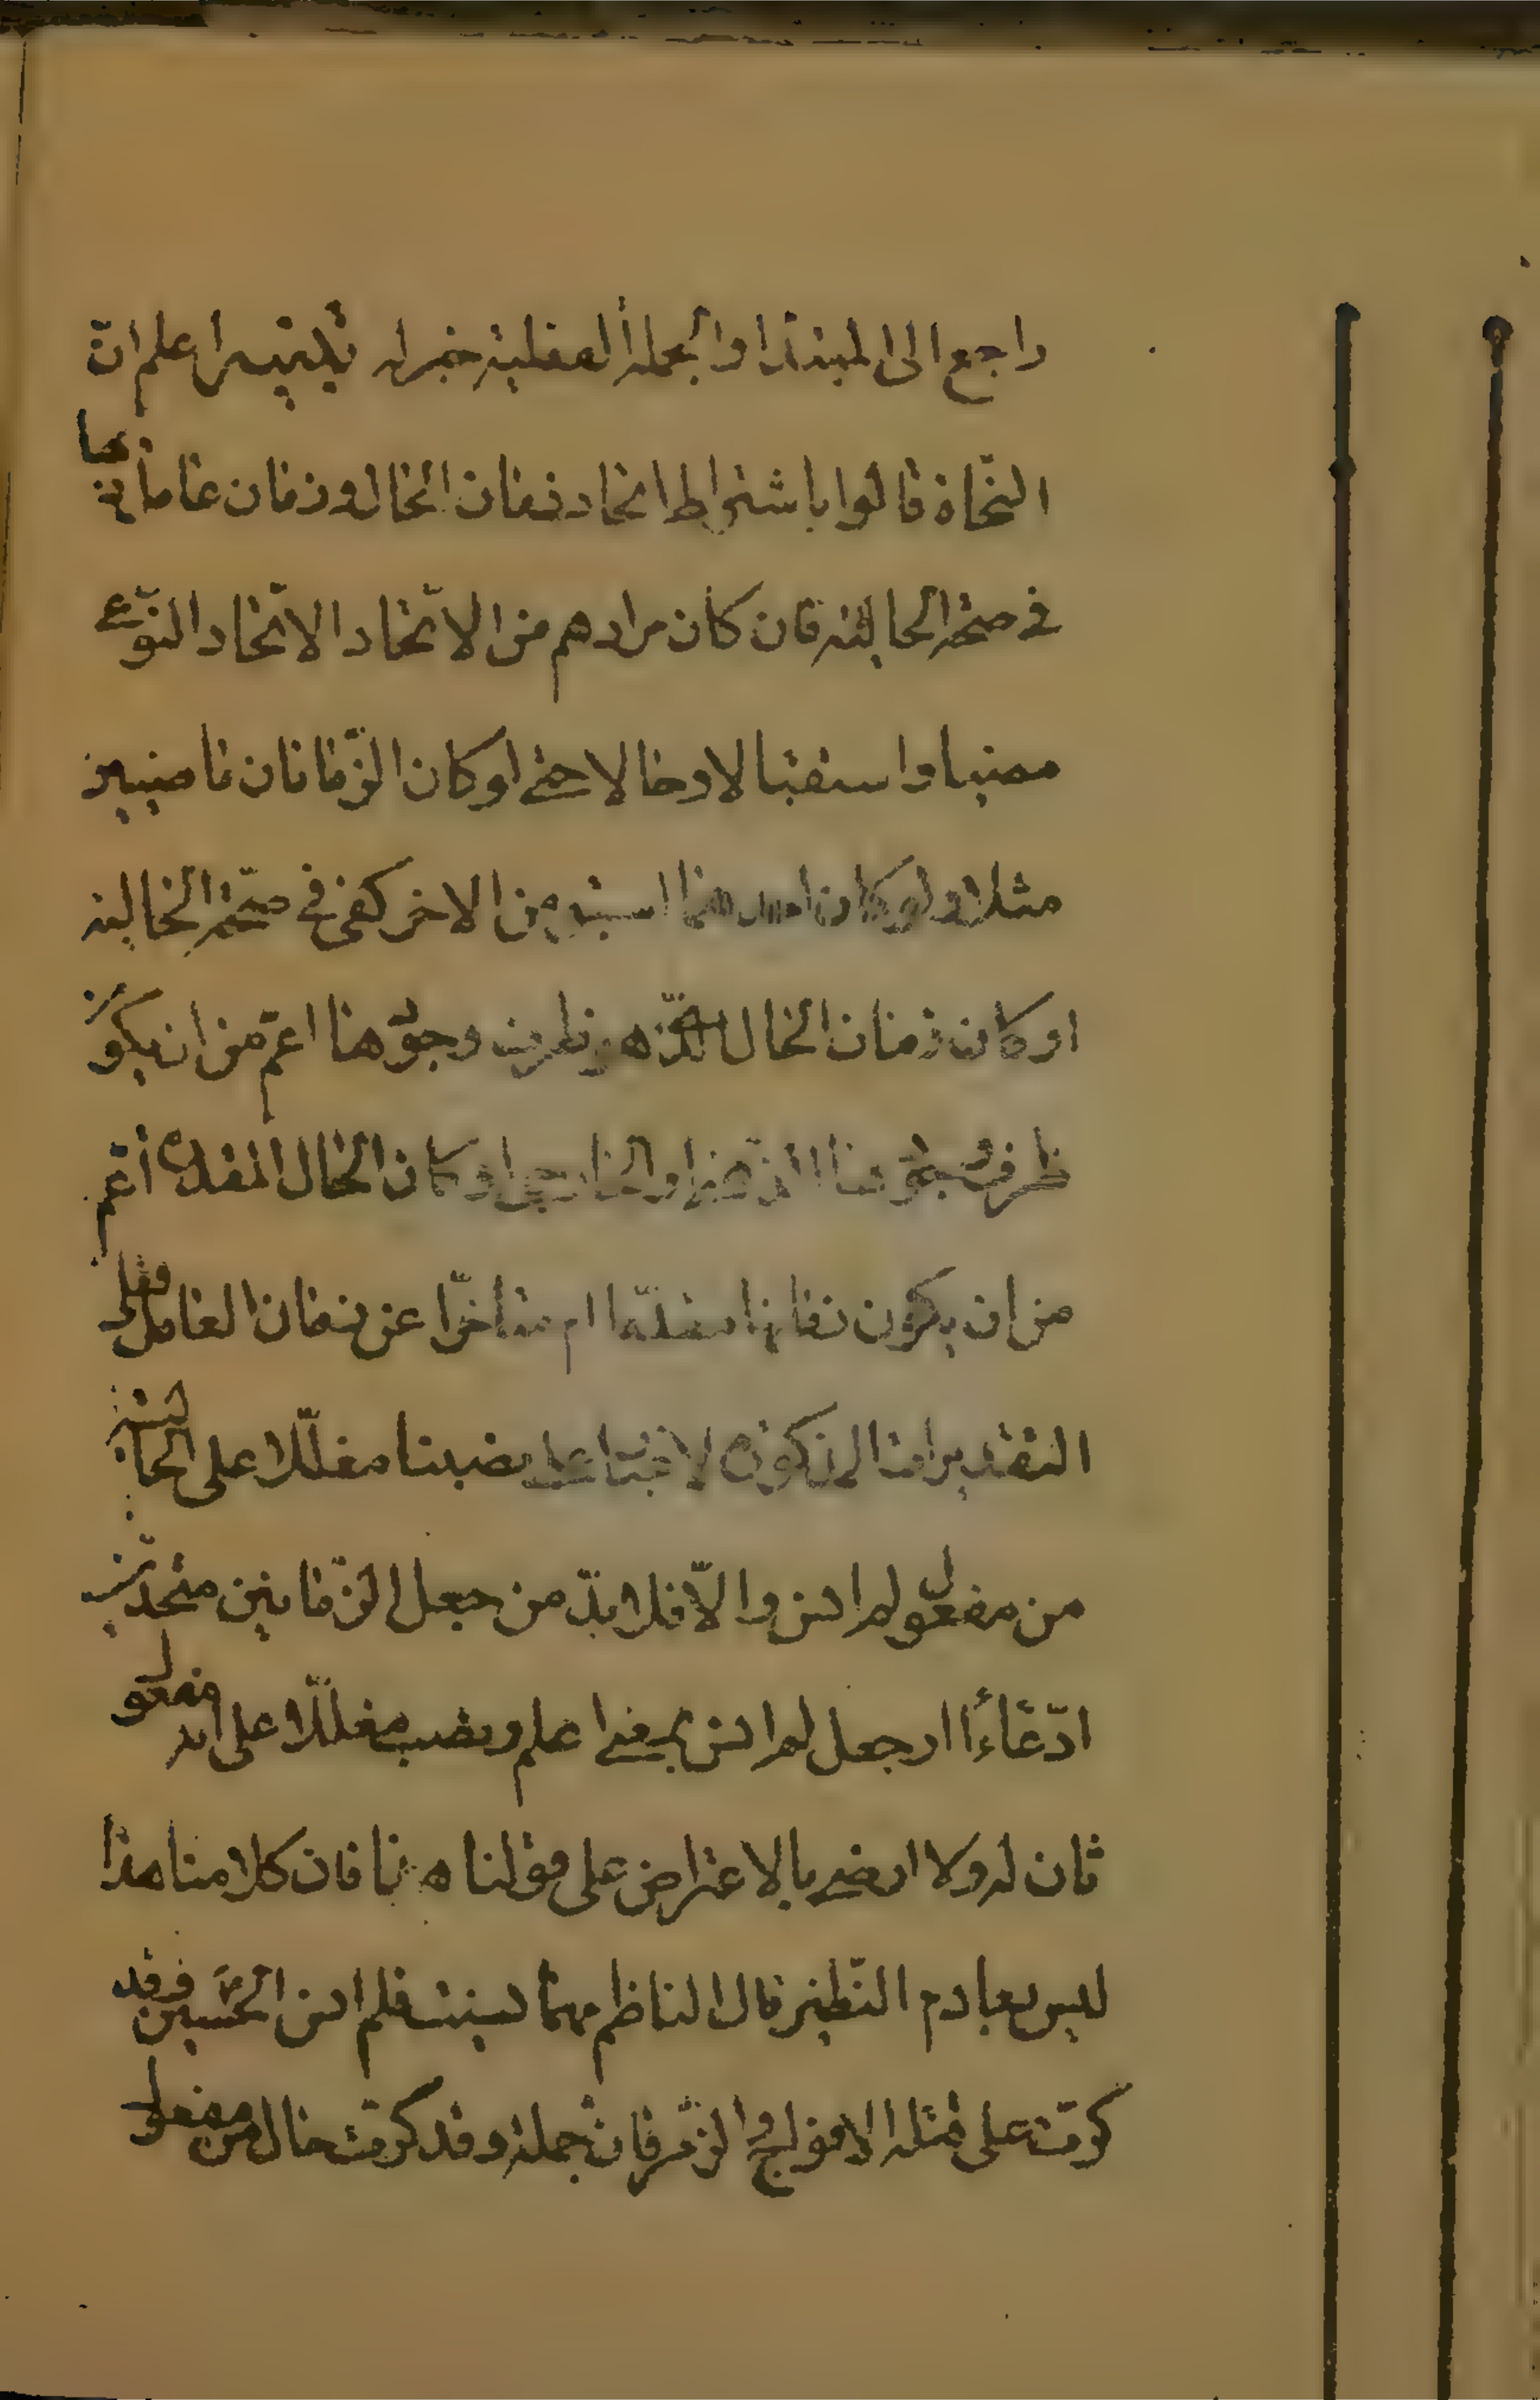 راجع الى المبتدا والجملة الفعلية خبر له تنبيه اعلم انّ
النحاة قالوا باشتراط اتحاد زمان الحال وزمان عاملها
فى صحة الحالية فان كان مرادهم من الاتّحاد الاتّحاد النّوعى
مضيا واستقبالا وحالا حتى لو كان الزّمانان ماضيين
مثلا ولو كان احدهما اسبق من الاخر كفى فى صحّة الحالية
او كان زمان الحال الّذى هو ظرف وجودها اعمّ من ان يكون
ظرف وجودها الذّهنى او الخارجى او كان الحال المقدرة اعم
من ان يكون زمانها مقدّما ام متاخّرا عن زمان العامل فعلى
التقديرات المذكورة لا غبار على نصبنا مغلّلا على الحالية
من مفعول لم انس والّا فلا بدّ من جعل الزّمانين متحدين
ادّعاءً او جعل لم انس بمعنى اعلم ونصب مغلّلا على انه مفعول
ثان له ولا ارضى بالاعتراض على قولنا هذا فان كلامنا هذا
ليس بعادم النّظير قال الناظم مهما نسيت فلم انس الحسين وقد
كرّت على قتله الافواج والزّمر فان جملة وقد كرّت حال من مفعول